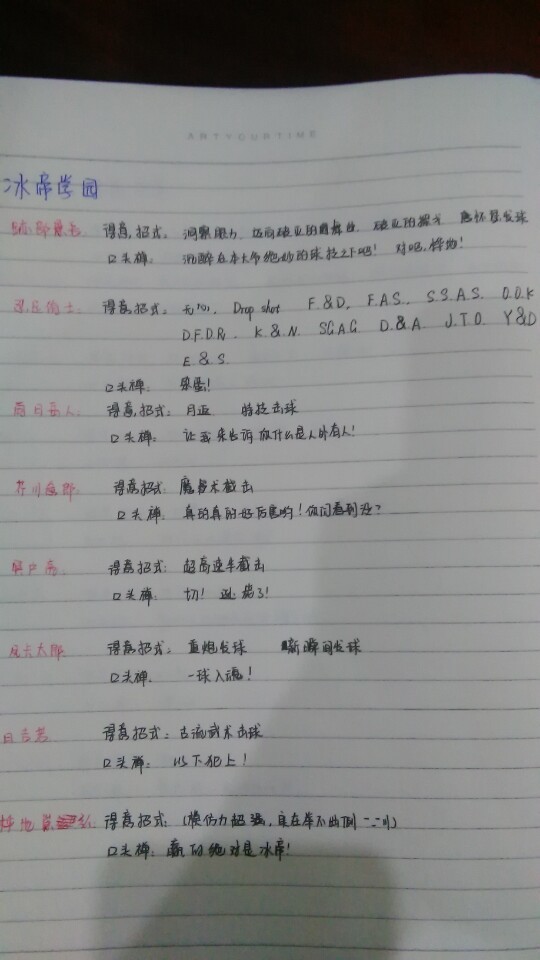 ARTYCURTIME
冰帝学园
迹部景吾 得意招式: 洞察眼力、迈向破灭的圆舞曲、破灭的 发球
口头禅: 沉醉在本大爷绝妙的球技之下吧! 对吧,桦地!
忍足侑士 得意招式: Drop shot F.&D. F.A.S. S.S.A.S. O.O.K
D.F.D.R. K.&N. S.G.A.G D.&A. J.T.O. Y&D
E.&S.
口头禅: 笨蛋!
向日岳人 得意招式: 月返 特技击球
口头禅: 让我来告诉你什么是人外有人!
芥川慈郎 得意招式: 魔术截击
口头禅: 真的真的好厉害哟!你们看到没?
宍户亮 得意招式: 超高速半截击
口头禅: 切! 逊毙了!
凤长太郎 得意招式: 重炮发球 瞬间发球
口头禅: 一球入魂!
日吉若 得意招式: 古流武术击球
口头禅: 以下犯上!
桦地崇弘 得意招式: (模仿力超强,实在举不出例 -.-ll)
口头禅: 赢的绝对是冰帝!